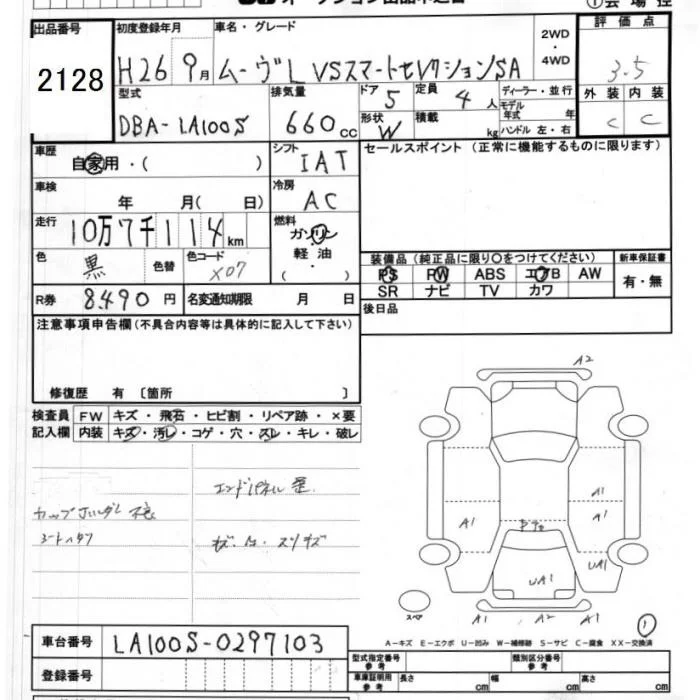 出品番号 初度登録年月 車名・グレード 2WD・4WD 評価点
2128 H26 9月 ムーヴL VSスマートセレクションSA 3.5
型式 排気量 ドア 定員 ディーラー・並行 外装 内装
DBA-LA100S 660cc 5 4人 モデル年式 年 C C
形状 W 積載 kg ハンドル 左・右
車歴 自家用・( ) シフト IAT セールスポイント (正常に機能するものに限ります)
車検 年 月( 日) 冷房 AC
走行 10万7千114km 燃料 ガソリン
軽油
( ・ )
色 黒 色替 色コード X07
装備品 (純正品に限り〇をつけてください) 新車保証書
PS PW ABS エアB AW 有・無
SR ナビ TV カワ
R券 8.490円 名変通知期限 月 日
後日品
注意事項申告欄(不具合内容等は具体的に記入して下さい)
修復歴 有 〔箇所 〕
検査員 FW キズ・飛石・ヒビ割・リペア跡・×要
記入欄 内装 キズ・汚レ・コゲ・穴・スレ・キレ・破レ
A2
エンドパネル歪
カップホルダー
A1
A1
A1
UA1
UA1
スペア
A1 A2 A1
1
A-キズ E-エクボ U-凹み W-補修跡 S-サビ C-腐食 XX-交換済
車台番号 LA100S-0297103
登録番号
型式指定番号 参考 類別区分番号 参考
車庫証明用 参考 長さ cm 幅 cm 高さ cm